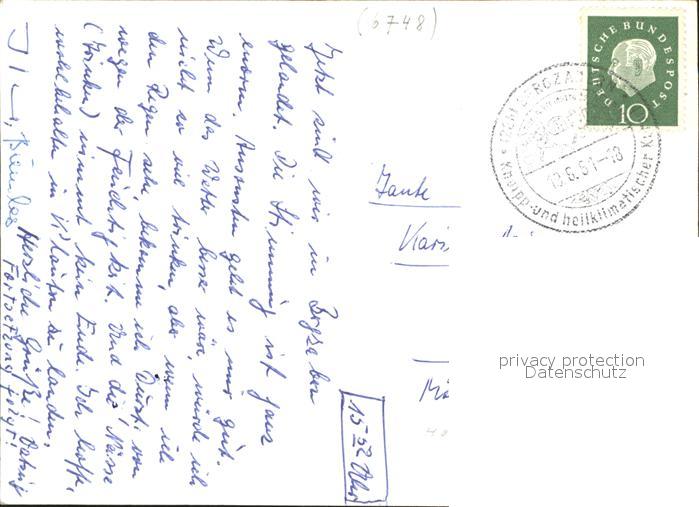 (6748)
DEUTSCHE BUNDESPOST
10
BERGZABERN
13.6.61-18
Kneipp- und heilklimatischer
Jetzt sind wir in Bergzabern
gelandet. Die Stimmung ist ganz
enorm. Ansonsten geht es mir gut.
Wenn das Wetter besser wär, würde ich
nicht so viel trinken, aber wenn ich
den Regen seh, bekomme ich Durst von
wegen der Feuchtigkeit. Und die Nässe
(Trinken) nimmt kein Ende. Ich hoffe,
wohlbehalten in K'lautern zu landen.
Herzliche Grüße!
Fortsetzung folgt!
Tante
15 52 Uhr
privacy protection
Datenschutz